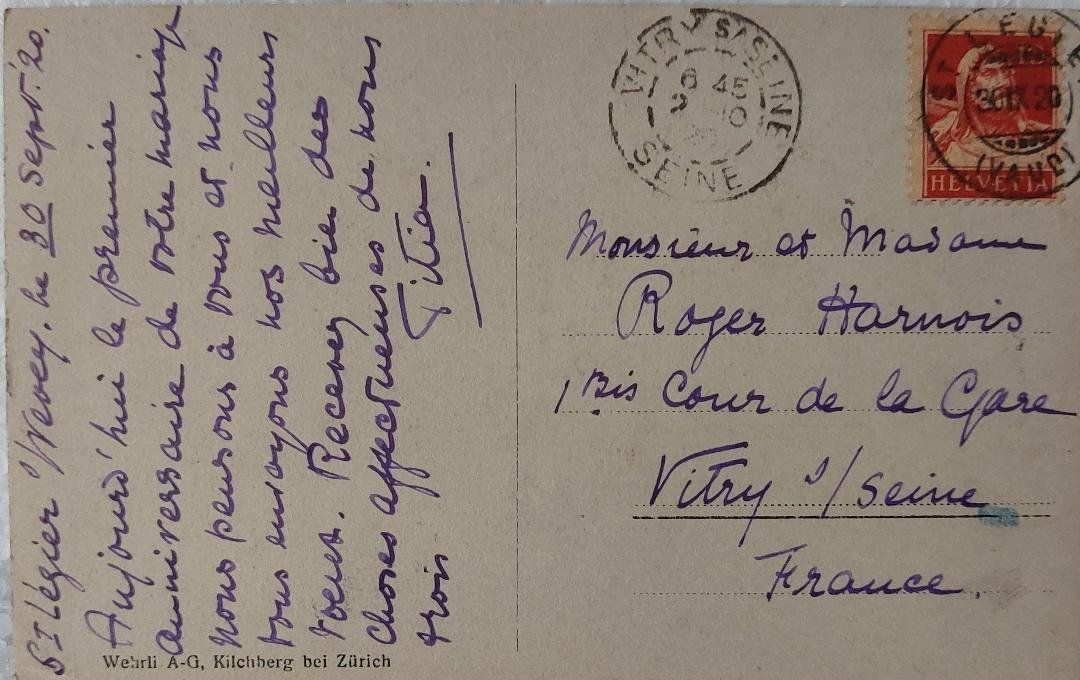 St Légier s/Vevey, le 30 Sept. '20.
Aujourd'hui le premier
anniversaire de votre mariage
nous pensons à vous et nous
vous envoyons nos meilleurs
voeux. Recevez bien des
choses affectueuses de nous
trois
Titia.
VITRY S/SEINE
6 45
2 10
SEINE
ST LEGIER
30 IX 20
(VAUD)
HELVETIA
Monsieur et Madame
Roger Harnois
1 Bis Cour de la Gare
Vitry s/Seine
France.
Wehrli A-G, Kilchberg bei Zürich